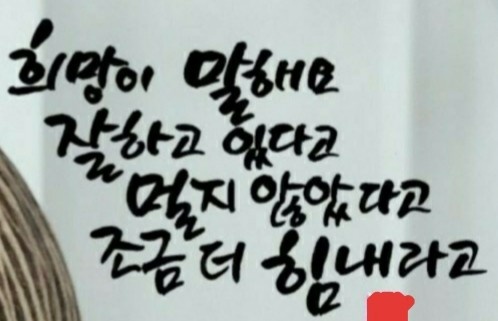 희망이 말해요
잘하고 있다고
멀지 않았다고
조금 더 힘내라고